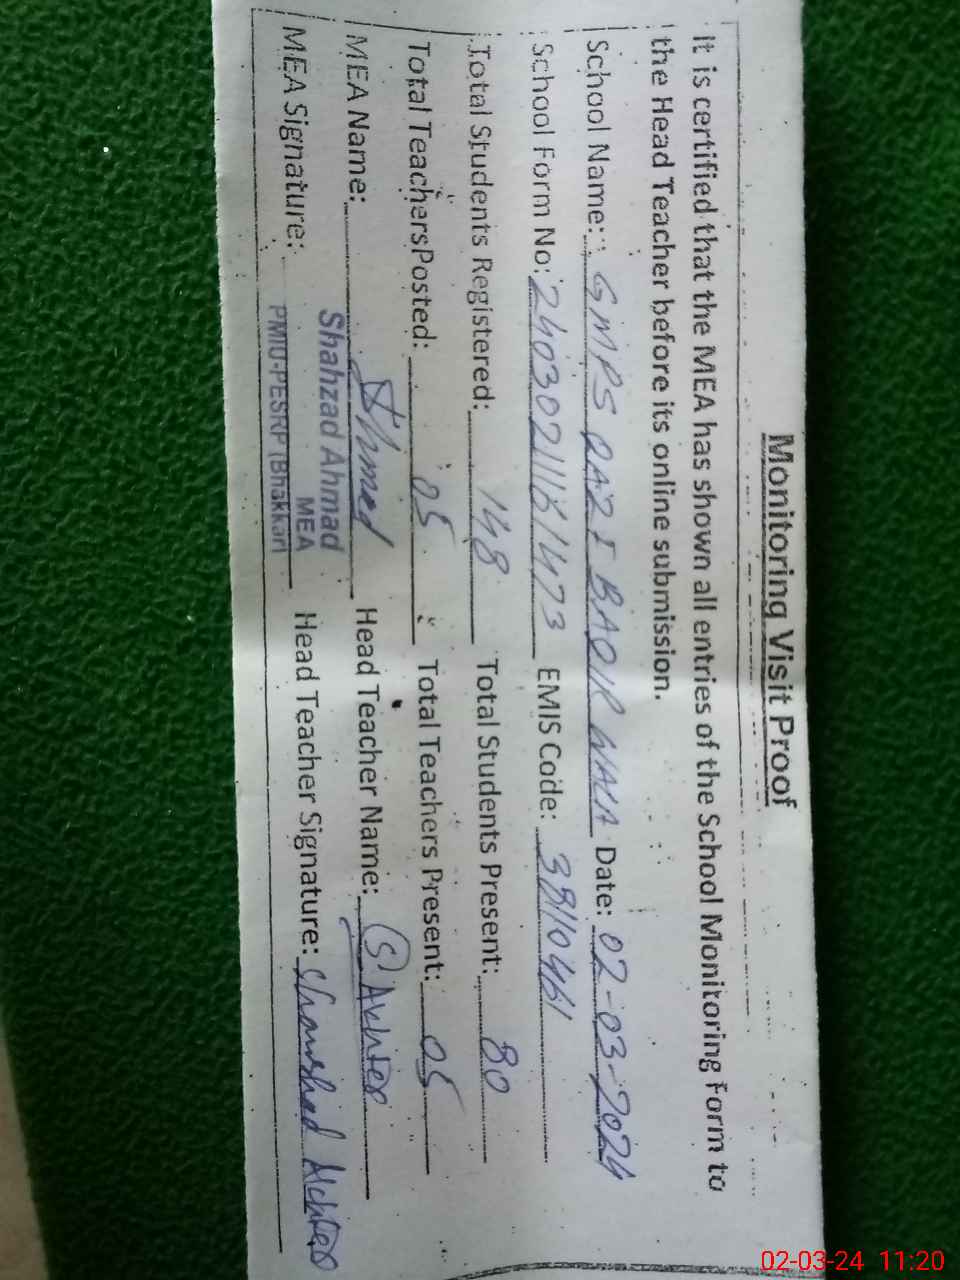 Monitoring Visit Proof
It is certified that the MEA has shown all entries of the School Monitoring Form to
the Head Teacher before its online submission.
School Name: GMPS QAZI BAQIR WALA Date: 02-03-2024
School Form No: EMIS Code: 38110461
Total Students Registered: 148 Total Students Present: 80
Total TeachersPosted: 05 Total Teachers Present: 05
MEA Name: Ahmed Head Teacher Name: S Akhter
Shahzad Ahmad
MEA
MEA Signature: PMIU-PESRP (Bhakkar) Head Teacher Signature: Akhter
02-03-24 11:20